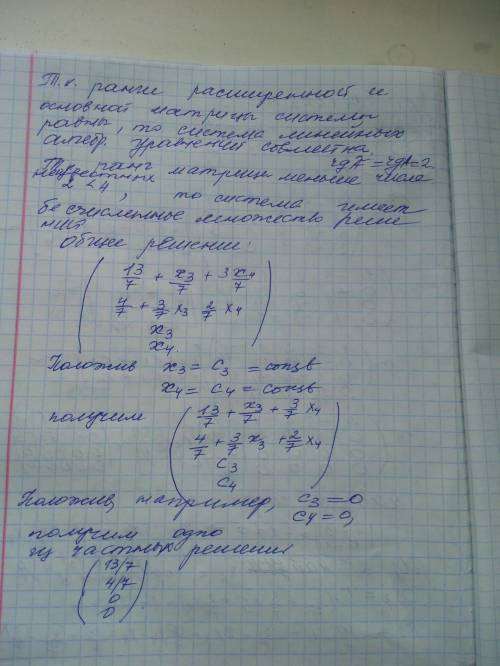 Т.к. ранги расширенной и
основной матрицы системы
равны, то система линейных
алгебр. уравнений совместна,
rgA = rgA = 2
Т.к. ранг матрицы меньше числа
неизвестных 2 < 4, то система имеет
бесчисленные множество реше
ний
Общее решение:
13/7 + x3/7 + 3x4/7
4/7 + 3/7 x3 2/7 x4
x3
x4
Положив x3 = C3 = const
x4 = C4 = const
получим
13/7 + x3/7 + 3/7 x4
4/7 + 3/7 x3 + 2/7 x4
C3
C4
Положив, например, C3 = 0
C4 = 0,
получим одно
из частных решения
13/7
4/7
0
0